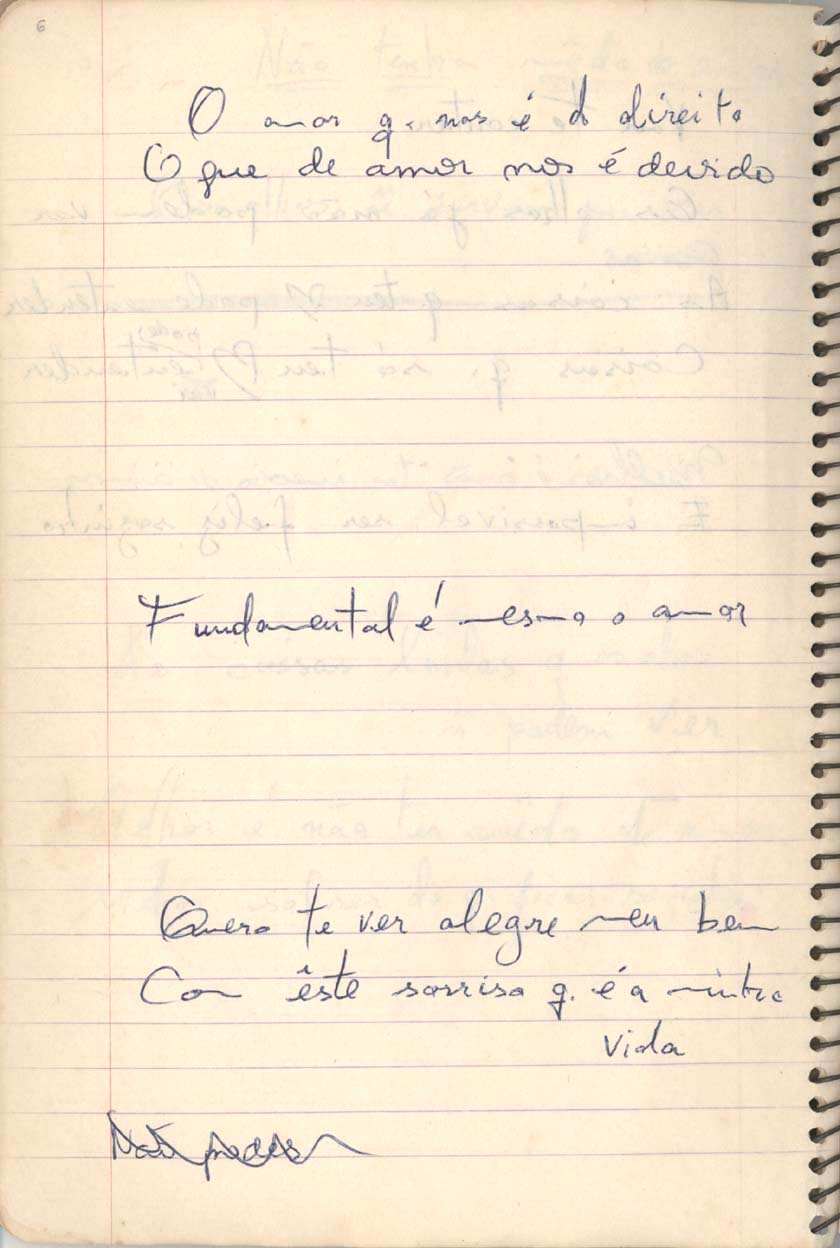 6
O amor q. nos é d direito
O que de amor nos é devido
Fundamental é mesmo o amor
Quero te ver alegre meu bem
Com êste sorriso q. é a minha
vida
Não